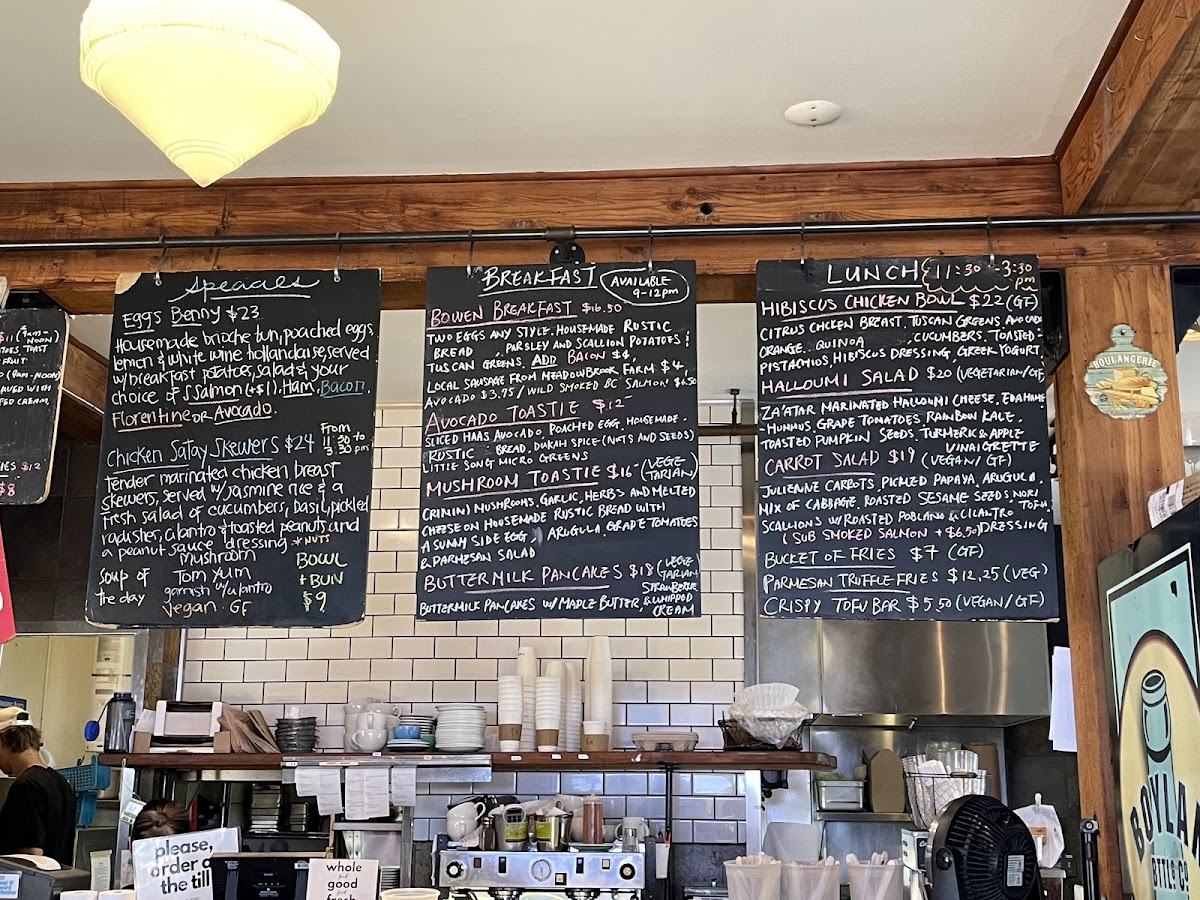 $11 (9am-
NOON)
TOAST
FRUIT
(9am-NOON)
WITH
CREAM,
$12
$8
Specials
Eggs Benny $23
Housemade brioche bun, poached eggs,
lemon & white wine hollandaise, served
w/ breakfast potatoes, salad & your
choice of: Salmon (+$1), Ham, Bacon,
Florentine OR Avocado.
Chicken Satay Skewers $24 From
11:30 to
3:30 pm
Tender marinated chicken breast
skewers, served w/ jasmine rice & a
fresh salad of cucumbers, basil, pickled
radishes, cilantro & toasted peanuts, and
a peanut sauce dressing *NUTS
Soup of
the day
Mushroom
Tom Yum
garnish w/ cilantro
Vegan. GF
BOWL
+ BUN
$9
BREAKFAST
AVAILABLE
9-12pm
BOWEN BREAKFAST $16.50
TWO EGGS ANY STYLE, HOUSEMADE RUSTIC
BREAD PARSLEY AND SCALLION POTATOES &
TUSCAN GREENS. ADD BACON $4,
LOCAL SAUSAGE FROM MEADOWBROOK FARM $4,
AVOCADO $3.75 / WILD SMOKED BC SALMON $6.50
AVOCADO TOASTIE $12-
SLICED HAAS AVOCADO, POACHED EGG, HOUSEMADE
RUSTIC BREAD, DUKAH SPICE (NUTS AND SEEDS)
LITTLE SONG MICRO GREENS
MUSHROOM TOASTIE $16- (VEGE-
TARIAN)
CRIMINI MUSHROOMS, GARLIC, HERBS AND MELTED
CHEESE ON HOUSEMADE RUSTIC BREAD WITH
A SUNNY SIDE EGG, ARUGULA, GRAPE TOMATOES
& PARMESAN SALAD
BUTTERMILK PANCAKES $18 (VEGE-
TARIAN)
BUTTERMILK PANCAKES W/ MAPLE BUTTER, STRAWBERRIES
& WHIPPED
CREAM
LUNCH 11:30-3:30
pm
HIBISCUS CHICKEN BOWL $22 (GF)
CITRUS CHICKEN BREAST, TUSCAN GREENS, AVOCADO
ORANGE, QUINOA, CUCUMBERS, TOASTED
PISTACHIOS, HIBISCUS DRESSING, GREEK YOGURT,
HALLOUMI SALAD $20 (VEGETARIAN/GF)
ZA'ATAR MARINATED HALLOUMI CHEESE, EDAMAME
HUMMUS, GRAPE TOMATOES, RAINBOW KALE,
TOASTED PUMPKIN SEEDS, TURMERIC & APPLE
VINAIGRETTE
CARROT SALAD $19 (VEGAN/GF)
JULIENNE CARROTS, PICKLED PAPAYA, ARUGULA,
MIX OF CABBAGE, ROASTED SESAME SEEDS, NORI,
SCALLIONS W/ ROASTED POBLANO & CILANTRO TOFU
DRESSING
(SUB SMOKED SALMON + $6.50)
BUCKET OF FRIES $7 (GF)
PARMESAN TRUFFLE FRIES $12.25 (VEG)
CRISPY TOFU BAR $5.50 (VEGAN/GF)
BOULANGERIE
please,
order @
the till
whole
good
fresh
BOYLAN
BTTLG CO